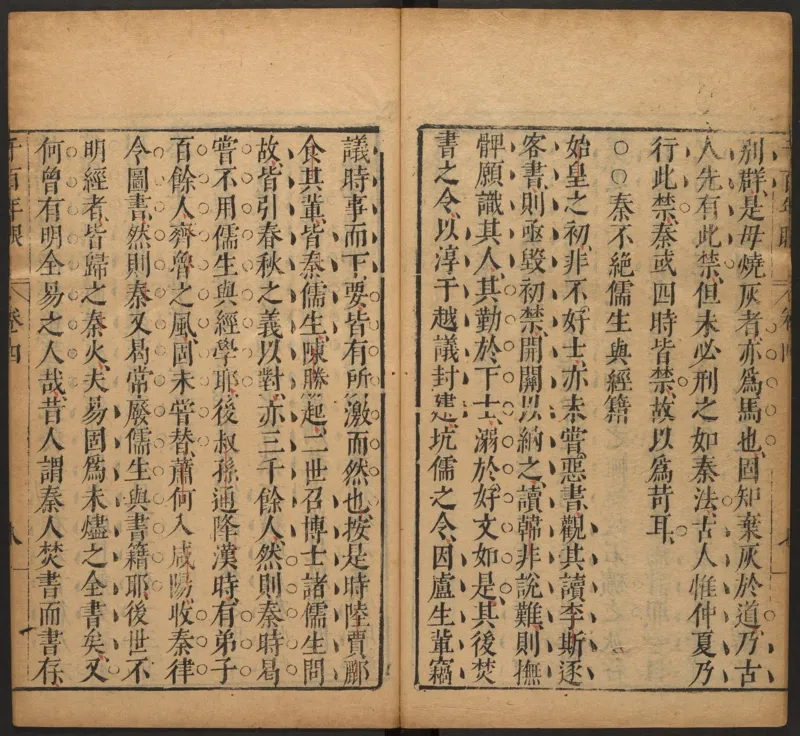 別群是毋燒灰者亦爲馬也固知棄灰於道乃古
人先有此禁但未必刑之如秦法古人惟仲夏乃
行此禁秦或四時皆禁故以爲苛耳
○○秦不絕儒生與經籍
始皇之初非不好士亦未嘗惡書觀其讀李斯逐
客書則亟毀初禁開關以納之讀韓非說難則撫
髀願識其人其勤於下士溺於好文如是其後焚
書之令以淳于越議封建坑儒之令因盧生輩竊
議時事而下要皆有所激而然也按是時陸賈酈
食其輩皆秦儒生陳勝起二世召博士諸儒生問
故皆引春秋之義以對亦三千餘人然則秦時曷
嘗不用儒生與經學耶後叔孫通降漢時有弟子
百餘人齊魯之風固未嘗替蕭何入咸陽收秦律
令圖書然則秦又曷常廢儒生與書籍耶後世不
明經者皆歸之秦火夫易固爲未燼之全書矣又
何曾有明全易之人哉昔人謂秦人焚書而書存
千百年眼
卷四
八